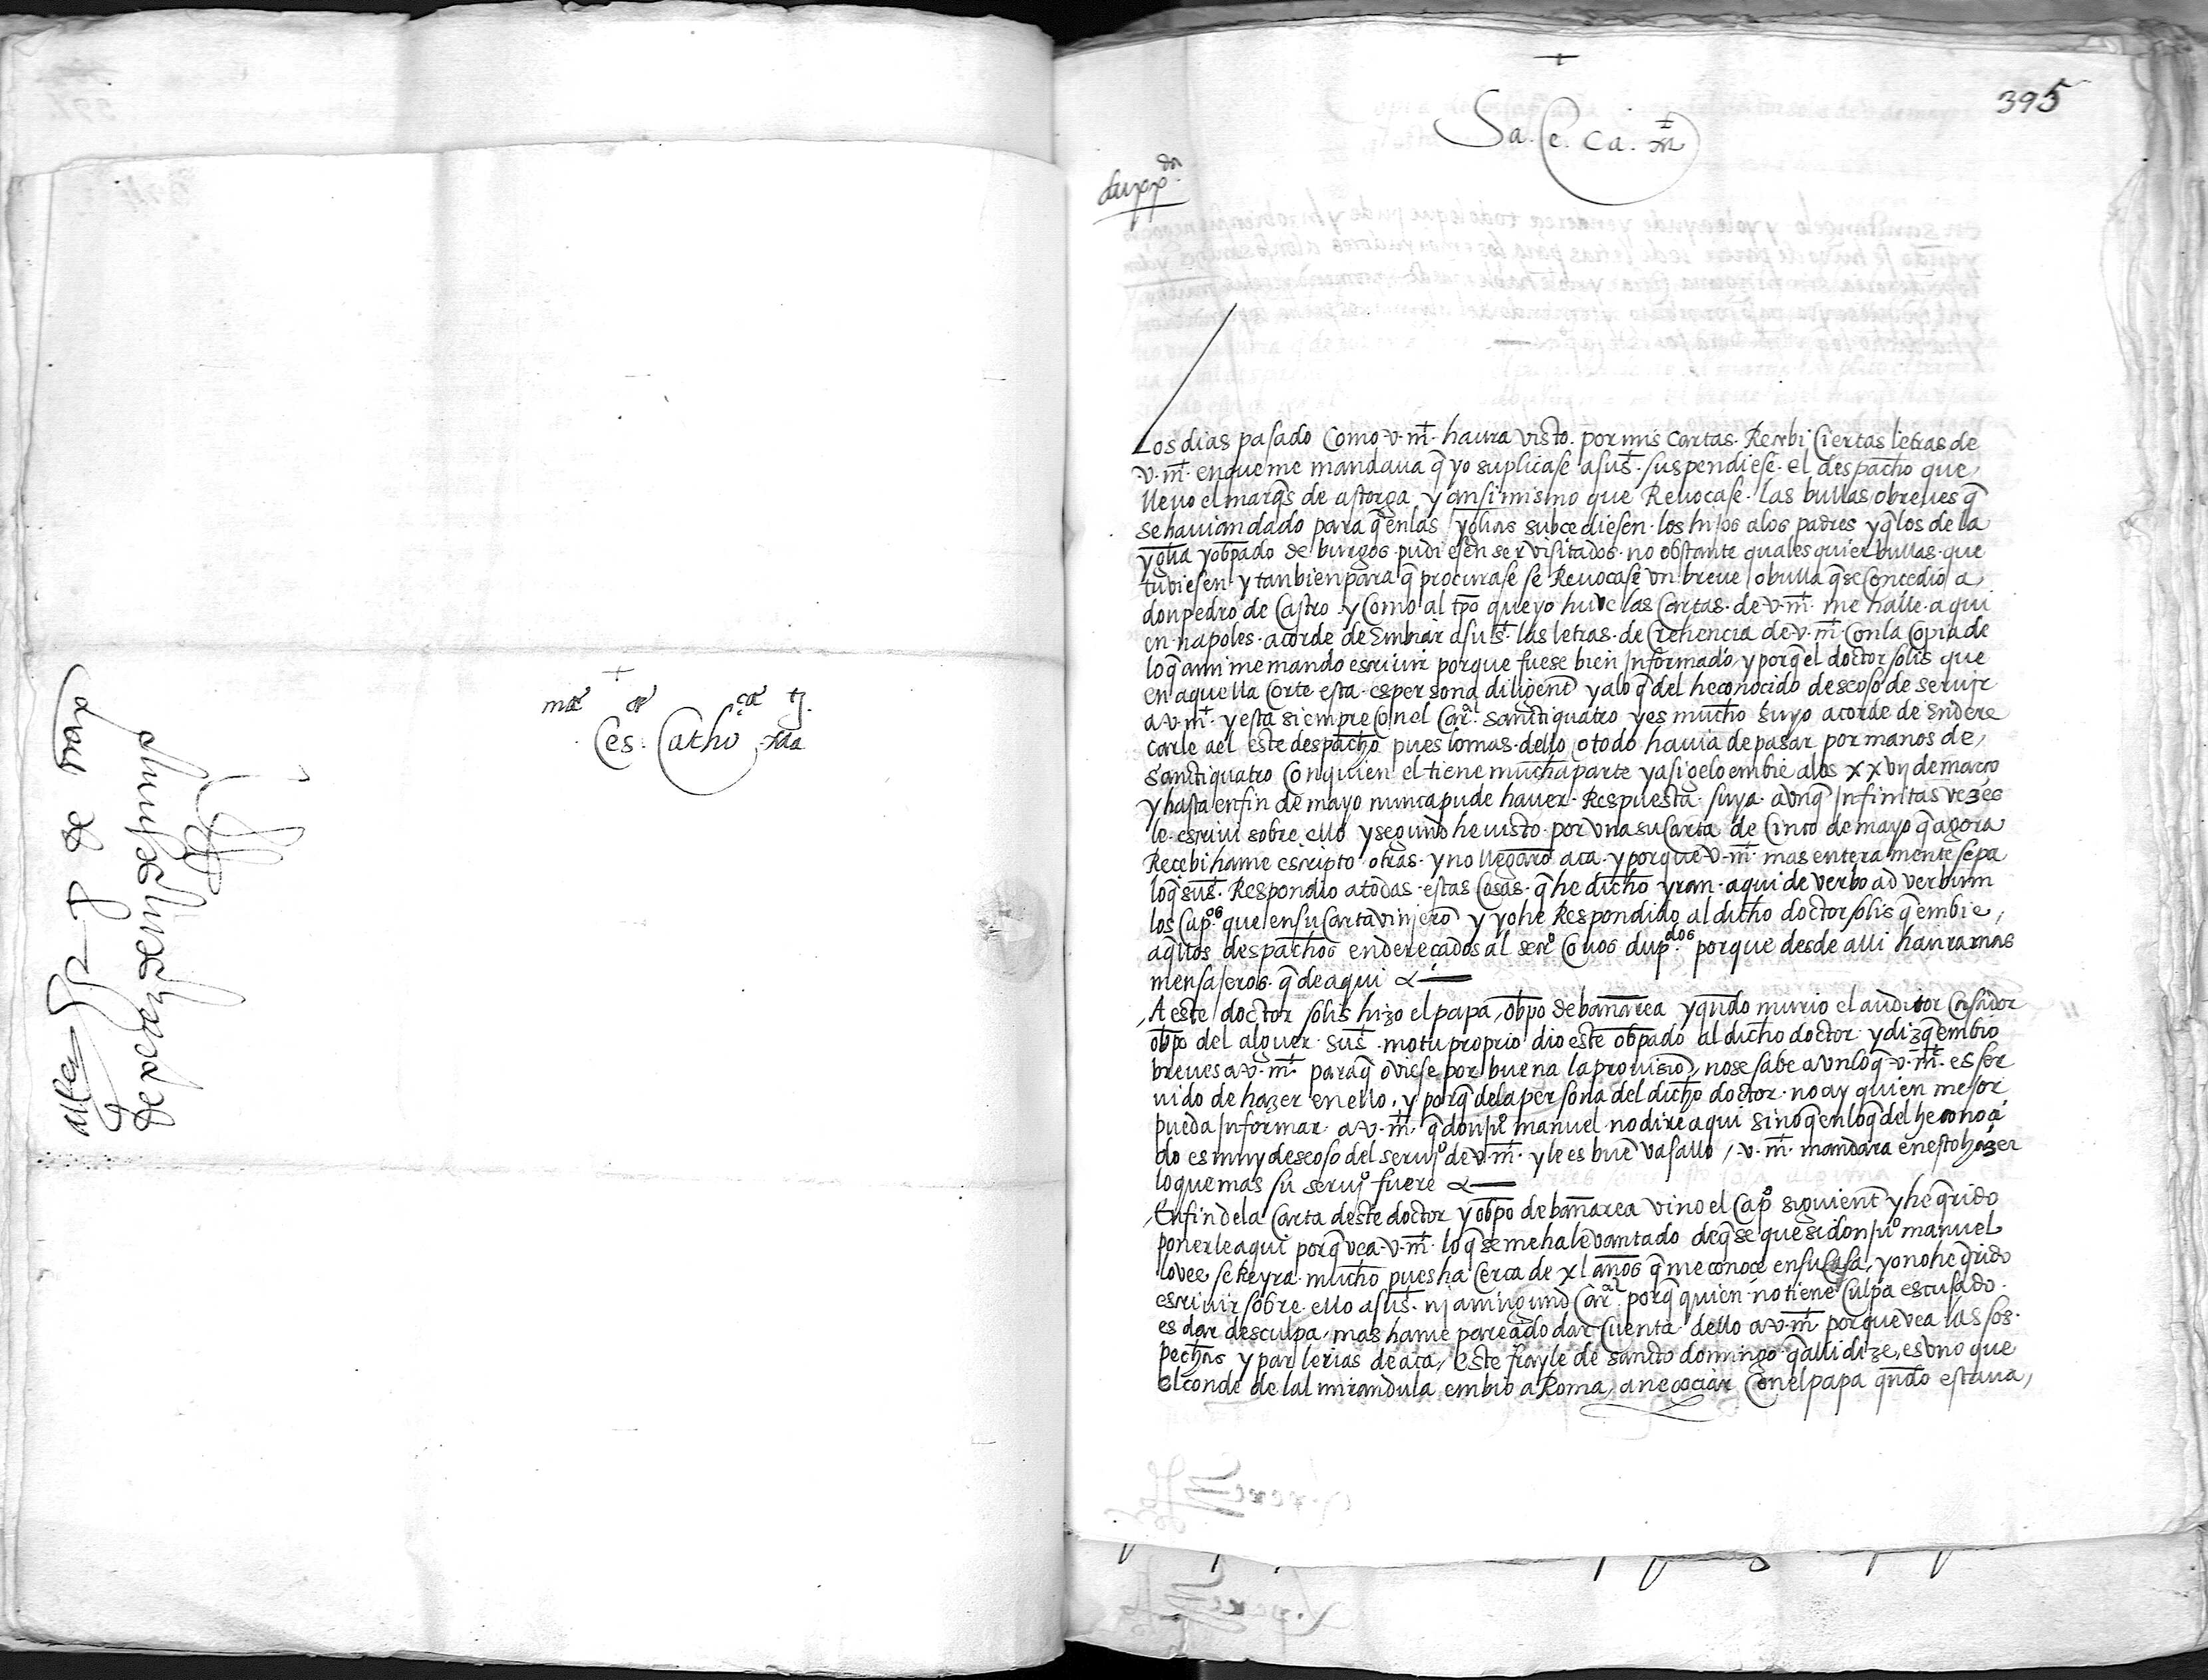 +
ma^t ce^a ca^a tj.
Ces. Catho. rda
al Rey
de perez xvii de junio
395
+
Sa. C. Ca. M^t
dupp^da.
Los dias pasado Como v. m^t. haura visto. por mis cartas. Recebi Ciertas letras de
v. m^t. en que me mandaua q̃ yo suplicase a su s^t. suspendiese. el despacho que
lleuo el marq̃s de astorga y ansi mismo que Reuocase. las bullas o breues q̃
se hauian dado para q̃ en las yglias subcediesen. los hijos a los padres y q̃ los de la
yglia y obpado de burgos pudiesen ser visitados. no obstante quales quier bullas. que
tubiesen y tanbien para q̃ procurase se Reuocase vn breue o bulla q̃ se Concedio a
don pedro de Castro. y Como al tp̃o que yo huve las Cartas. de v. m^t. me halle. aqui
en napoles. acorde de Embiar a su s^t. las letras. de Crehencia de v. m^t. Con la Copia de
lo q̃ a mi me mando escriuir porque fuese bien Informado, y porq̃ el doctor solis que
en aquella Corte esta. es persona diligent̃ y a lo q̃ del he conocido deseoso de seruir
a v. m^t. y esta siempre Con el Car^al. sanctiquatro y es mucho suyo acorde de Endere
carle a el este despacho pues lo mas. dello o todo hauia de pasar por manos de,
Sanctiquatro Con quien el tiene mucha parte y asi gelo embie a los xxvij de março
y hasta en fin de mayo nunca pude hauer. Respuesta. suya. avnq̃ Infinitas vezes
le. escriui sobre ello y segund he visto. por vna su Carta de Cinco de mayo q̃ agora
Recebi hame escripto. otras. y no llegarõ aca. y porque v. m^t. mas entera mente sepa
lo q̃ su s^t. Respondio a todas. estas Cosas. q̃ he dicho yran. aqui de verbo ad verbum
los Cap^os. que en su Carta vinjerõ y yo he Respondido al dicho doctor solis q̃ embie,
aq̃llos despachos endereçados al señ^o Couos dup^dos. porque desde alli haura mas
mensajeros. q̃ de aqui &—
A este doctor solis hizo el papa, obp̃o de bañarea y qñdo murio el auditor Casador
obp̃o del alguer. su s^t. motu proprio dio este obpado al dicho doctor. y diz q̃ embio
breues a v. m^t. para q̃ oviese por buena la prouisiõ, no se sabe avn lo q̃ v. m^t. es ser
uido de hazer en ello, y porq̃ de la persona del dicho doctor. no ay quien mejor,
pueda Informar. a v. m^t. q̃ don ju^o manuel no dire aqui sino q̃ en lo q̃ del he conoci
do es muy deseoso del serui^o de v. m^t. y le es buẽ vasallo, v. m^t. mandara en esto hazer
lo que mas su serui^o fuere &—
En fin de la Carta deste doctor y obp̃o de bañarea vino el Cap^o siguient̃ y he q̃rido
ponerle aqui porq̃ vea. v. m^t. lo q̃ se me ha levantado de q̃ se que si don ju^o manuel
lo vee se Reyra. mucho pues ha Cerca de xl años q̃ me conoce en su Casa, yo no he q̃rido
escriuir sobre. ello a su s^t. nj a ningund Car^al. porq̃ quien. no tiene Culpa escusado.
es dar desculpa, mas hame pareçido dar Cuenta. dello a v. m^t. porque vea las sos.
pechas y parlerias de aca, este frayle de sancto domingo. q̃ alli dize, es vno que
el conde de la mirandula embio a Roma, a negociar Con el papa qñdo estaua,